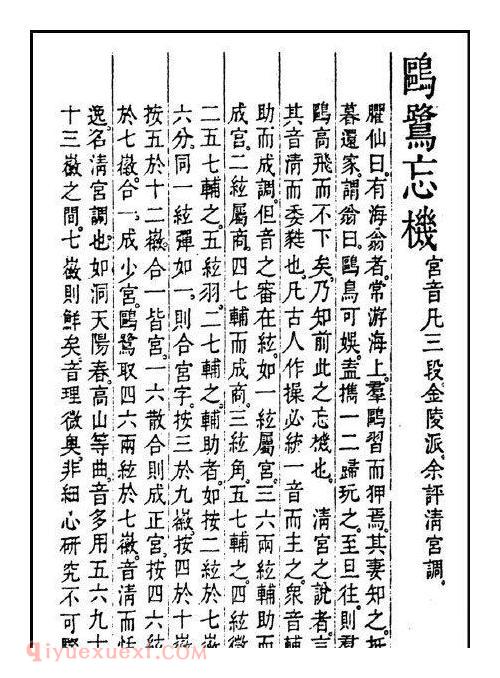 鷗鷺忘機 宮音凡三段金陵派余評清宮調
臞仙曰有海翁者常游海上羣鷗習而狎焉其妻知之抵
暮還家謂翁曰鷗鳥可娛盍攜一二歸玩之至旦往則羣
鷗高飛而不下矣乃知前此之忘機也 清宮之說者言
其音清而委蕤也凡古人作操必統一音而主之衆音輔
助而成調但音之審在絃如一絃屬宮三六兩絃輔助而
成宮二絃屬商四七輔而成商三絃角五七輔之四絃徵
二五七輔之五絃羽二七輔之輔助者如按二絃於七徽
六分同一絃彈如一則合宮字按三於九徽按四於十徽
按五於十二徽合一皆宮一六散合則成正宮按四六絃
於七徽合一成少宮鷗鷺取四六兩絃於七徽音清而恬
逸名清宮調也如洞天陽春高山等曲音多用五六九十
十三徽之間七徽則鮮矣音理微奥非細心研究不可
qiyuexuexi.com